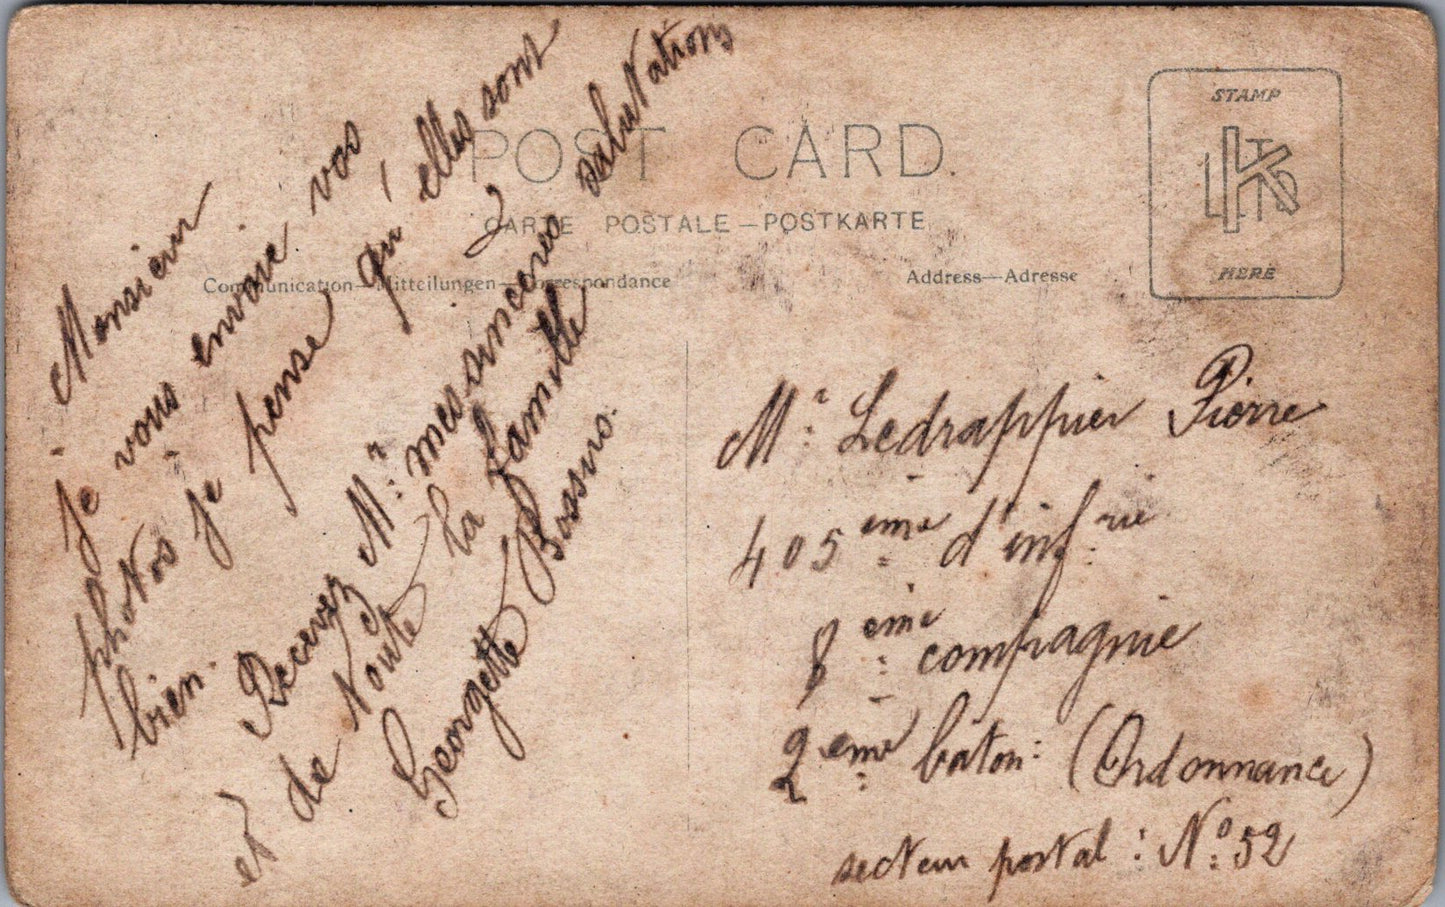 POST CARD.
CARTE POSTALE — POSTKARTE
Communication—Mitteilungen—Correspondance
Address—Adresse
STAMP
K LTD
HERE
Monsieur
je vous envoie vos
photos je pense qu'elles sont
bien.
Recevez Mr: mes sincères salutations
et de toute la famille.
Georgette
Mr: Ledrappier Pierre
405 ème d'infrie
8 ème compagnie
2 ème baton: (Ordonnance)
secteur postal: No: 52